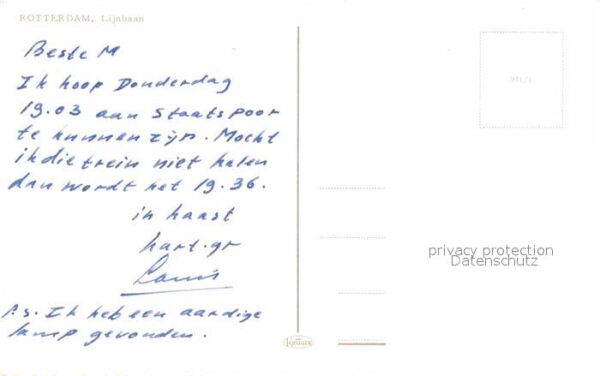 ROTTERDAM, Lijnbaan
Beste M
Ik hoop Donderdag
19.03 aan Staatspoor
te kunnen zijn. Mocht
ik die trein niet halen
dan wordt het 19.36.
in haast
hart. gr
Louis
P.S. Ik heb een aardige
lamp gevonden.
privacy protection
Datenschutz